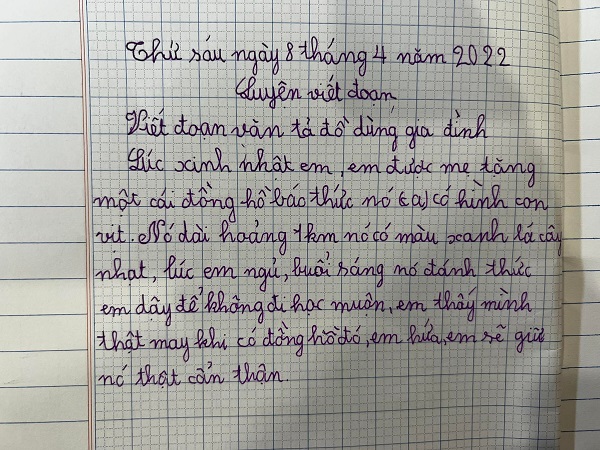 Thứ sáu ngày 8 tháng 4 năm 2022
Luyện viết đoạn
Viết đoạn văn tả đồ dùng gia đình
Lúc xinh nhật em, em được mẹ tặng
một cái đồng hồ báo thức nó (a) có hình con
vit. Nó dài hoảng 1km nó có màu xanh lá cây
nhạt, lúc em ngủ, buổi sáng nó đánh thức
em dây để không đi học muôn, em thấy mình
thật may khi có đồng hồ đó, em hứa, em sẽ giữ
nó thật cẩn thận.